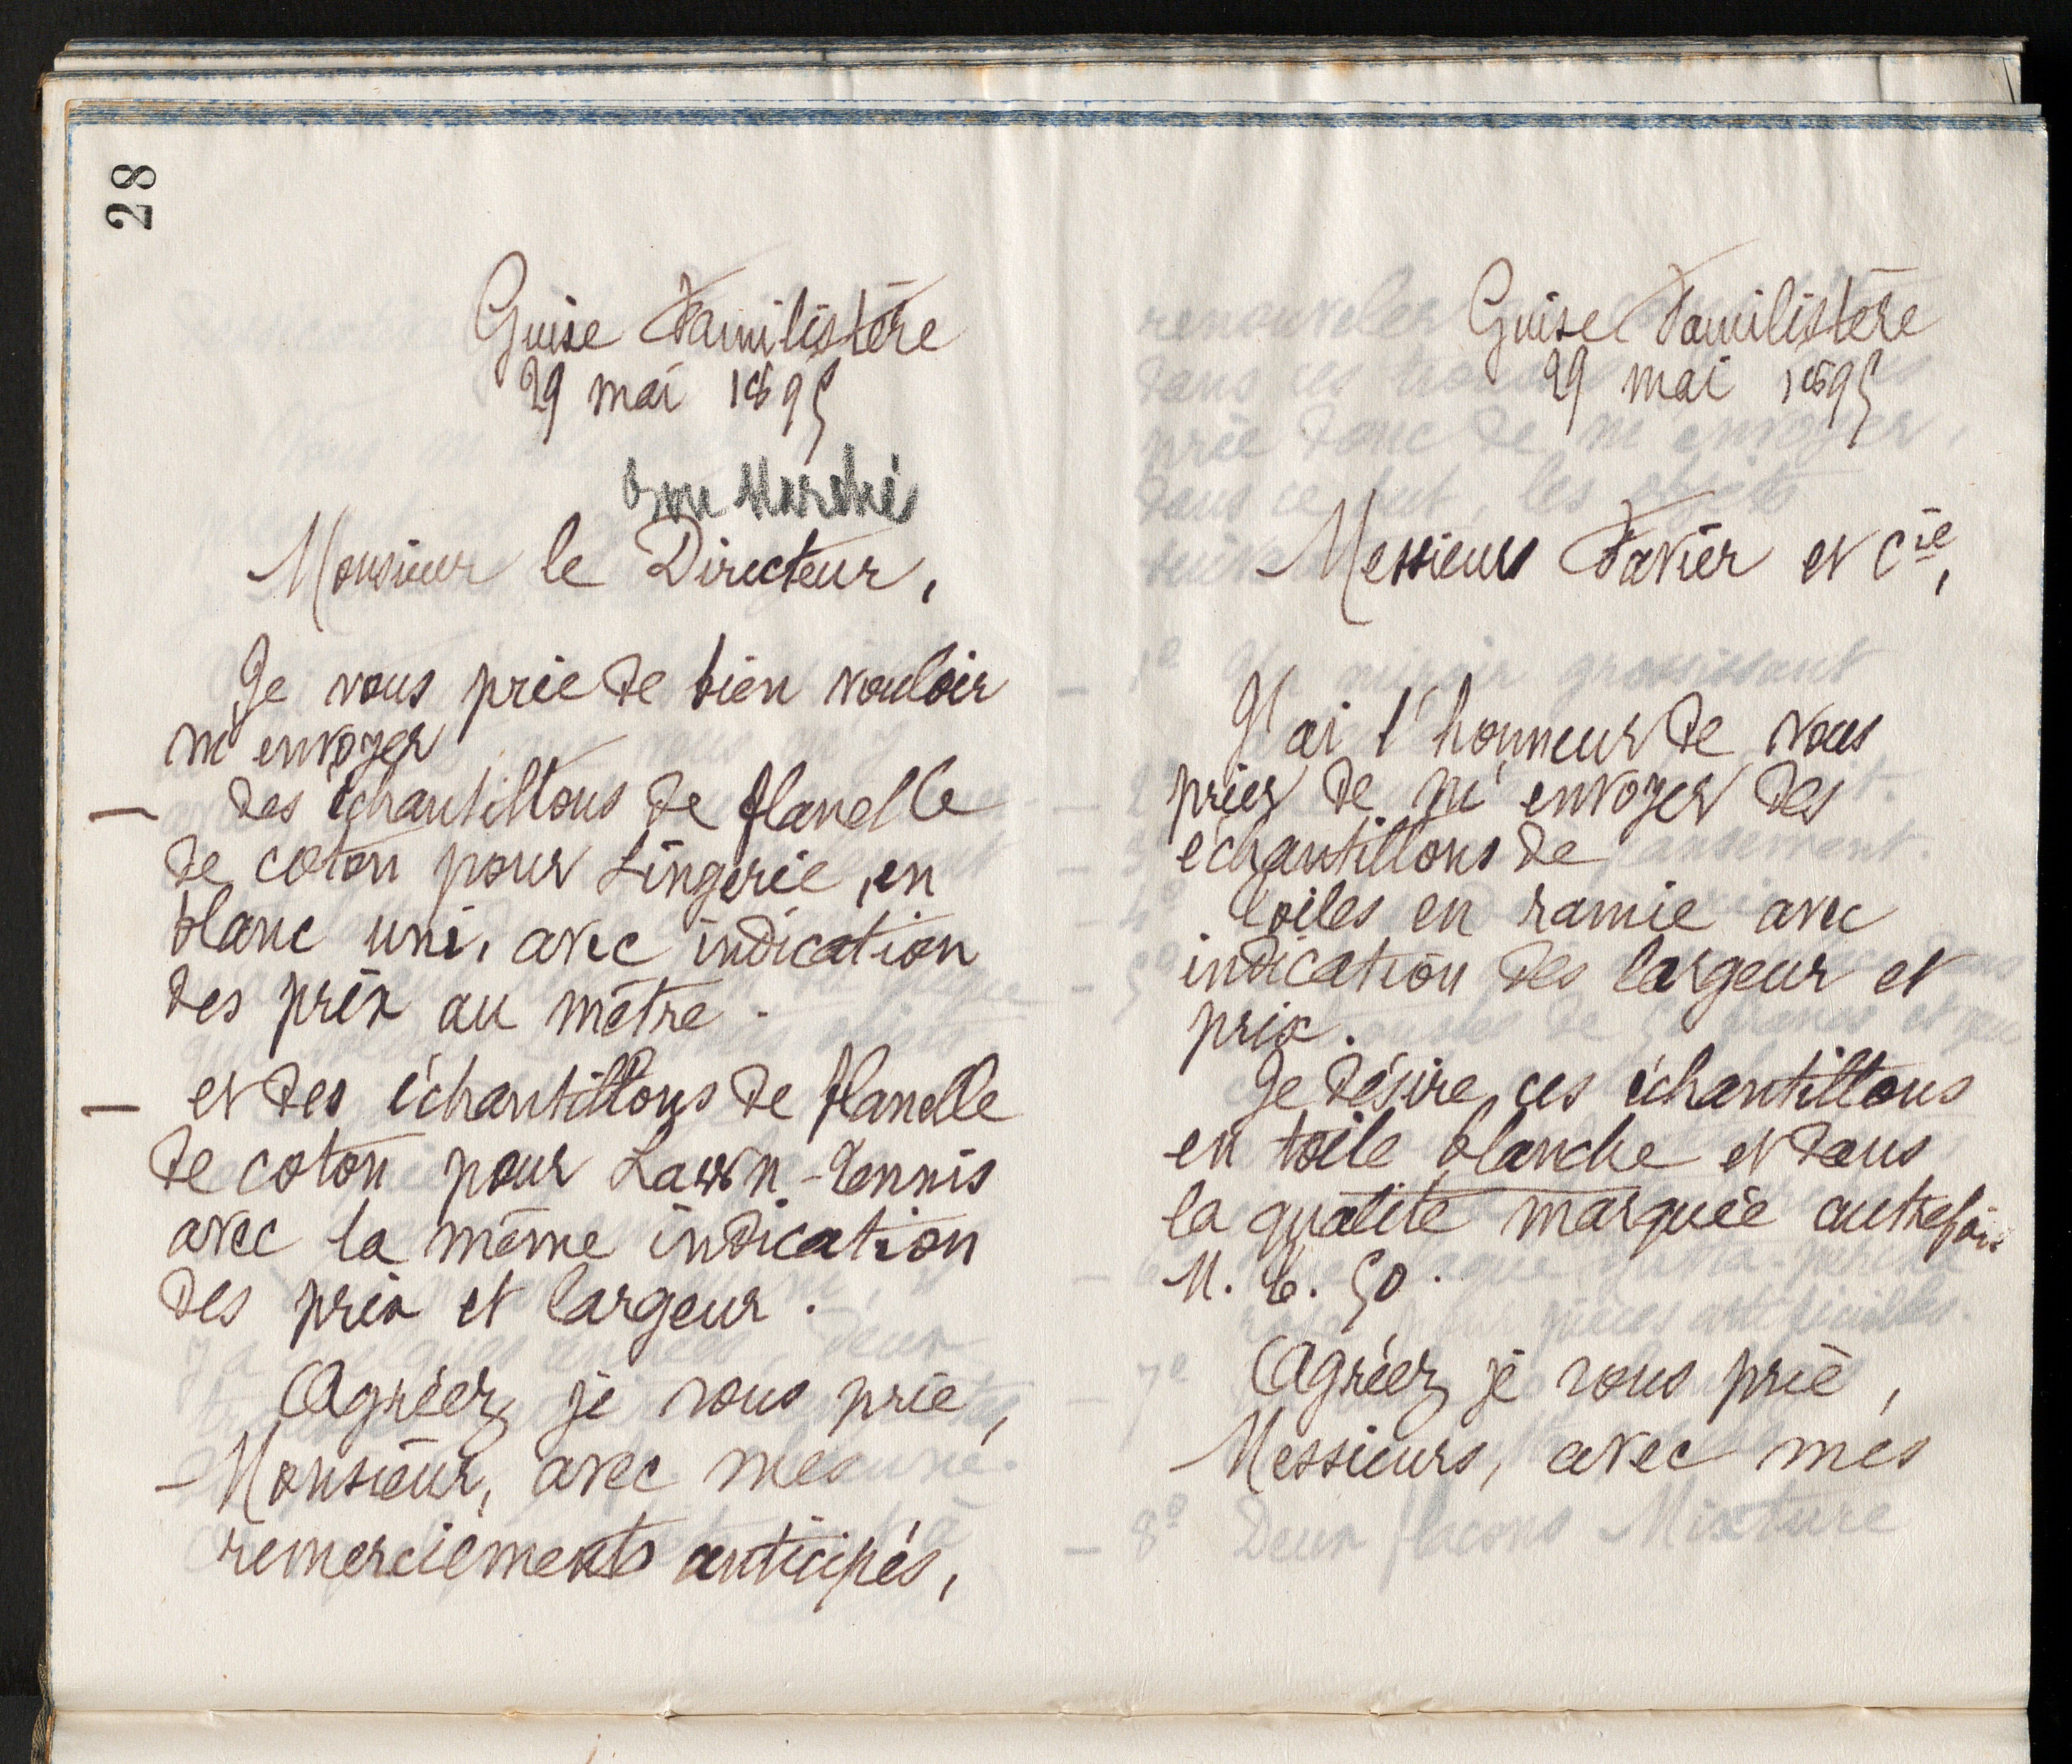 28
Guise Familistère
29 mai 1895
Bon Marché
Monsieur le Directeur,
Je vous prie de bien vouloir
m'envoyer
— des échantillons de flanelle
de coton pour Lingerie, en
blanc uni, avec indication
des prix au mètre.
— et des échantillons de flanelle
de coton pour Lawn-Tennis
avec la même indication
des prix et largeur.
Agréez je vous prie,
Monsieur, avec mes
remerciements anticipés,
Guise Familistère
29 mai 1895
Messieurs Favier et Cie,
J'ai l'honneur de vous
prier de m'envoyer des
échantillons de
toiles en ramie avec
indication des largeur et
prix.
Je désire ces échantillons
en toile blanche et dans
la qualité marquée autrefois
50.
Agréez je vous prie,
Messieurs, avec mes